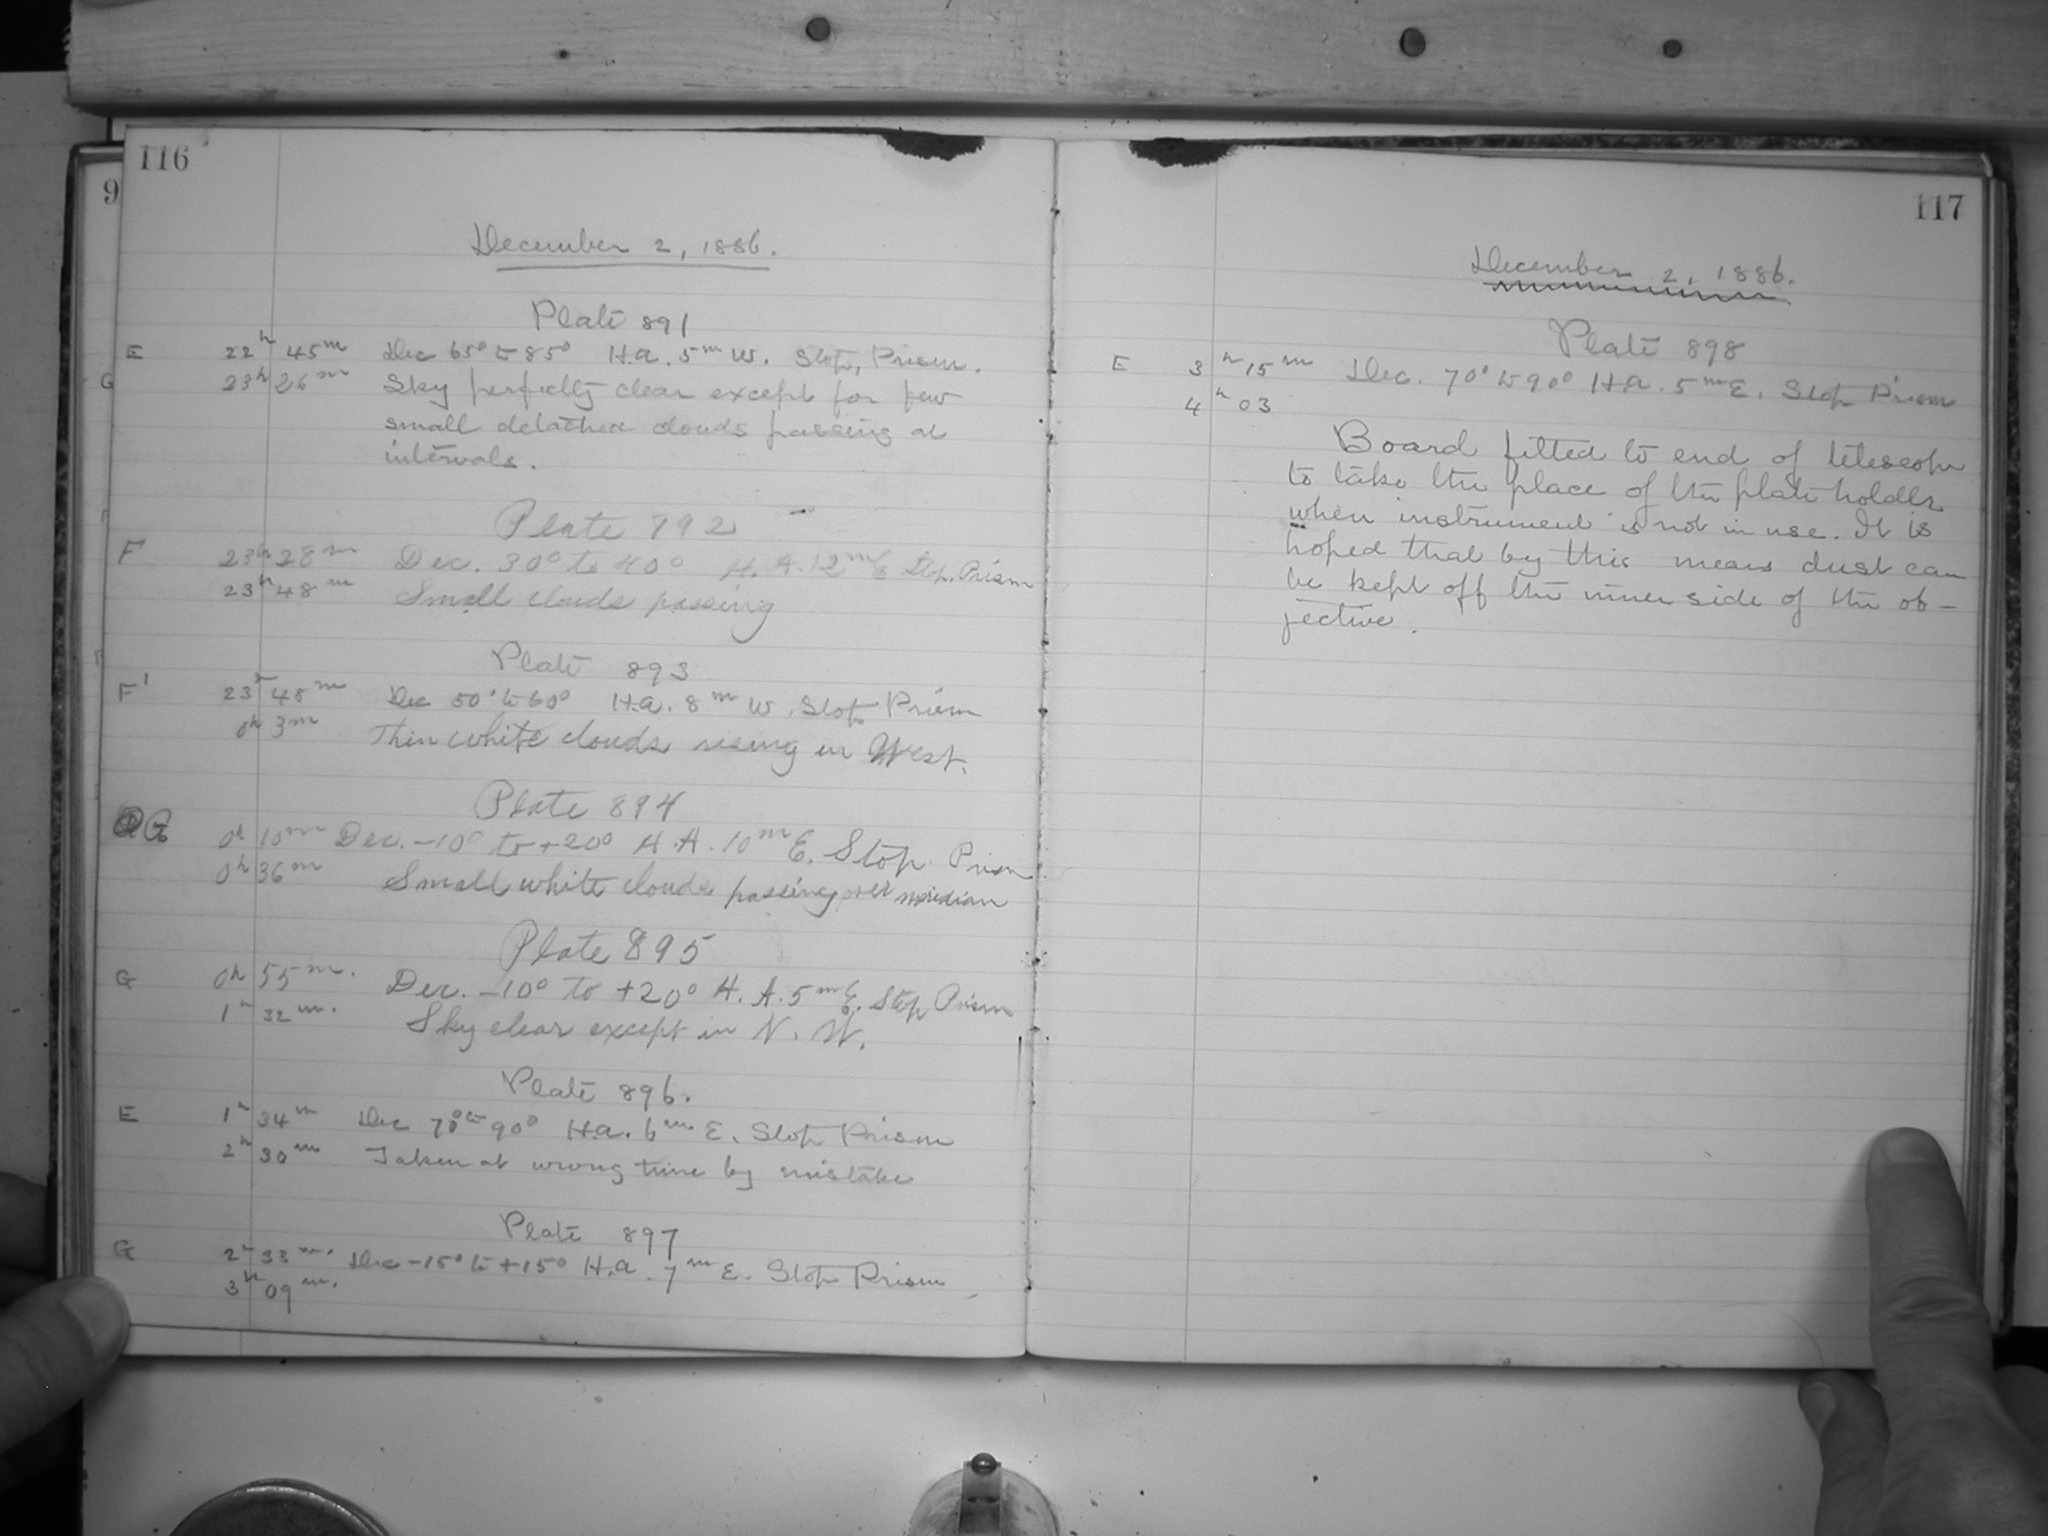 116
9
December 2, 1886.
Plate 891
E 22h 45m Dec 65° to 85° H.a. 5m W. Stop, Prism.
G 23h 26m Sky perfectly clear except for few
small detached clouds passing at
intervals.
Plate 892
F 23h 28m Dec. 30° to 40° H.A. 12m E Stop. Prism
23h 48m Small clouds passing
Plate 893
F' 23h 48m Dec 50° to 60° H.a. 8m W. Stop Prism
0h 3m Thin white clouds rising in West.
Plate 894
G 0h 10m Dec. -10° to +20° H.A. 10m E. Stop. Prism
0h 36m Small white clouds passing over meridian
Plate 895
G 0h 55m. Dec. -10° to +20° H.A. 5m E. Stop Prism
1h 32m. Sky clear except in N. W.
Plate 896.
E 1h 34m Dec 70° to 90° H.a. 6m E. Stop Prism
2h 30m Taken at wrong time by mistake
Plate 897
G 2h 33m. Dec -15° to +15° H.a. 7m E. Stop Prism
3h 09m.
117
December 2, 1886.
Plate 898
E 3h 15m Dec. 70° to 90° H.a. 5m E. Stop Prism
4h 03
Board fitted to end of telescope
to take the place of the plate holder
when instrument is not in use. It is
hoped that by this means dust can
be kept off the inner side of the ob-
jective.